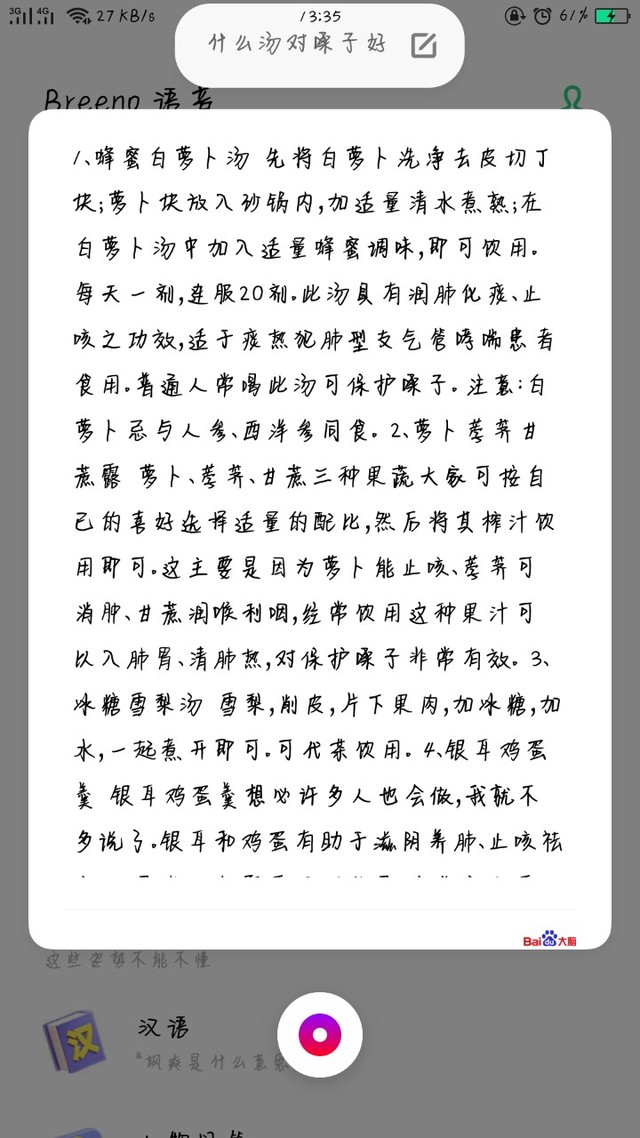 3G 4G 27 KB/s 13:35 61%
什么汤对嗓子好
Breeno 语音
1、蜂蜜白萝卜汤 先将白萝卜洗净去皮切丁
块;萝卜块放入砂锅内,加适量清水煮熟;在
白萝卜汤中加入适量蜂蜜调味,即可饮用。
每天一剂,连服20剂。此汤具有润肺化痰、止
咳之功效,适于痰热犯肺型支气管哮喘患者
食用。普通人常喝此汤可保护嗓子。注意:白
萝卜忌与人参、西洋参同食。2、萝卜荸荠甘
蔗露 萝卜、荸荠、甘蔗三种果蔬大家可按自
己的喜好选择适量的配比,然后将其榨汁饮
用即可。这主要是因为萝卜能止咳、荸荠可
消肿、甘蔗润喉利咽,经常饮用这种果汁可
以入肺胃、清肺热,对保护嗓子非常有效。3、
冰糖雪梨汤 雪梨,削皮,片下果肉,加冰糖,加
水,一起煮开即可。可代茶饮用。4、银耳鸡蛋
羹 银耳鸡蛋羹想必许多人也会做,我就不
多说了。银耳和鸡蛋有助于滋阴养肺、止咳祛
Bai du 大脑
这些姿势不能不懂
汉
汉语
“飒爽是什么意思